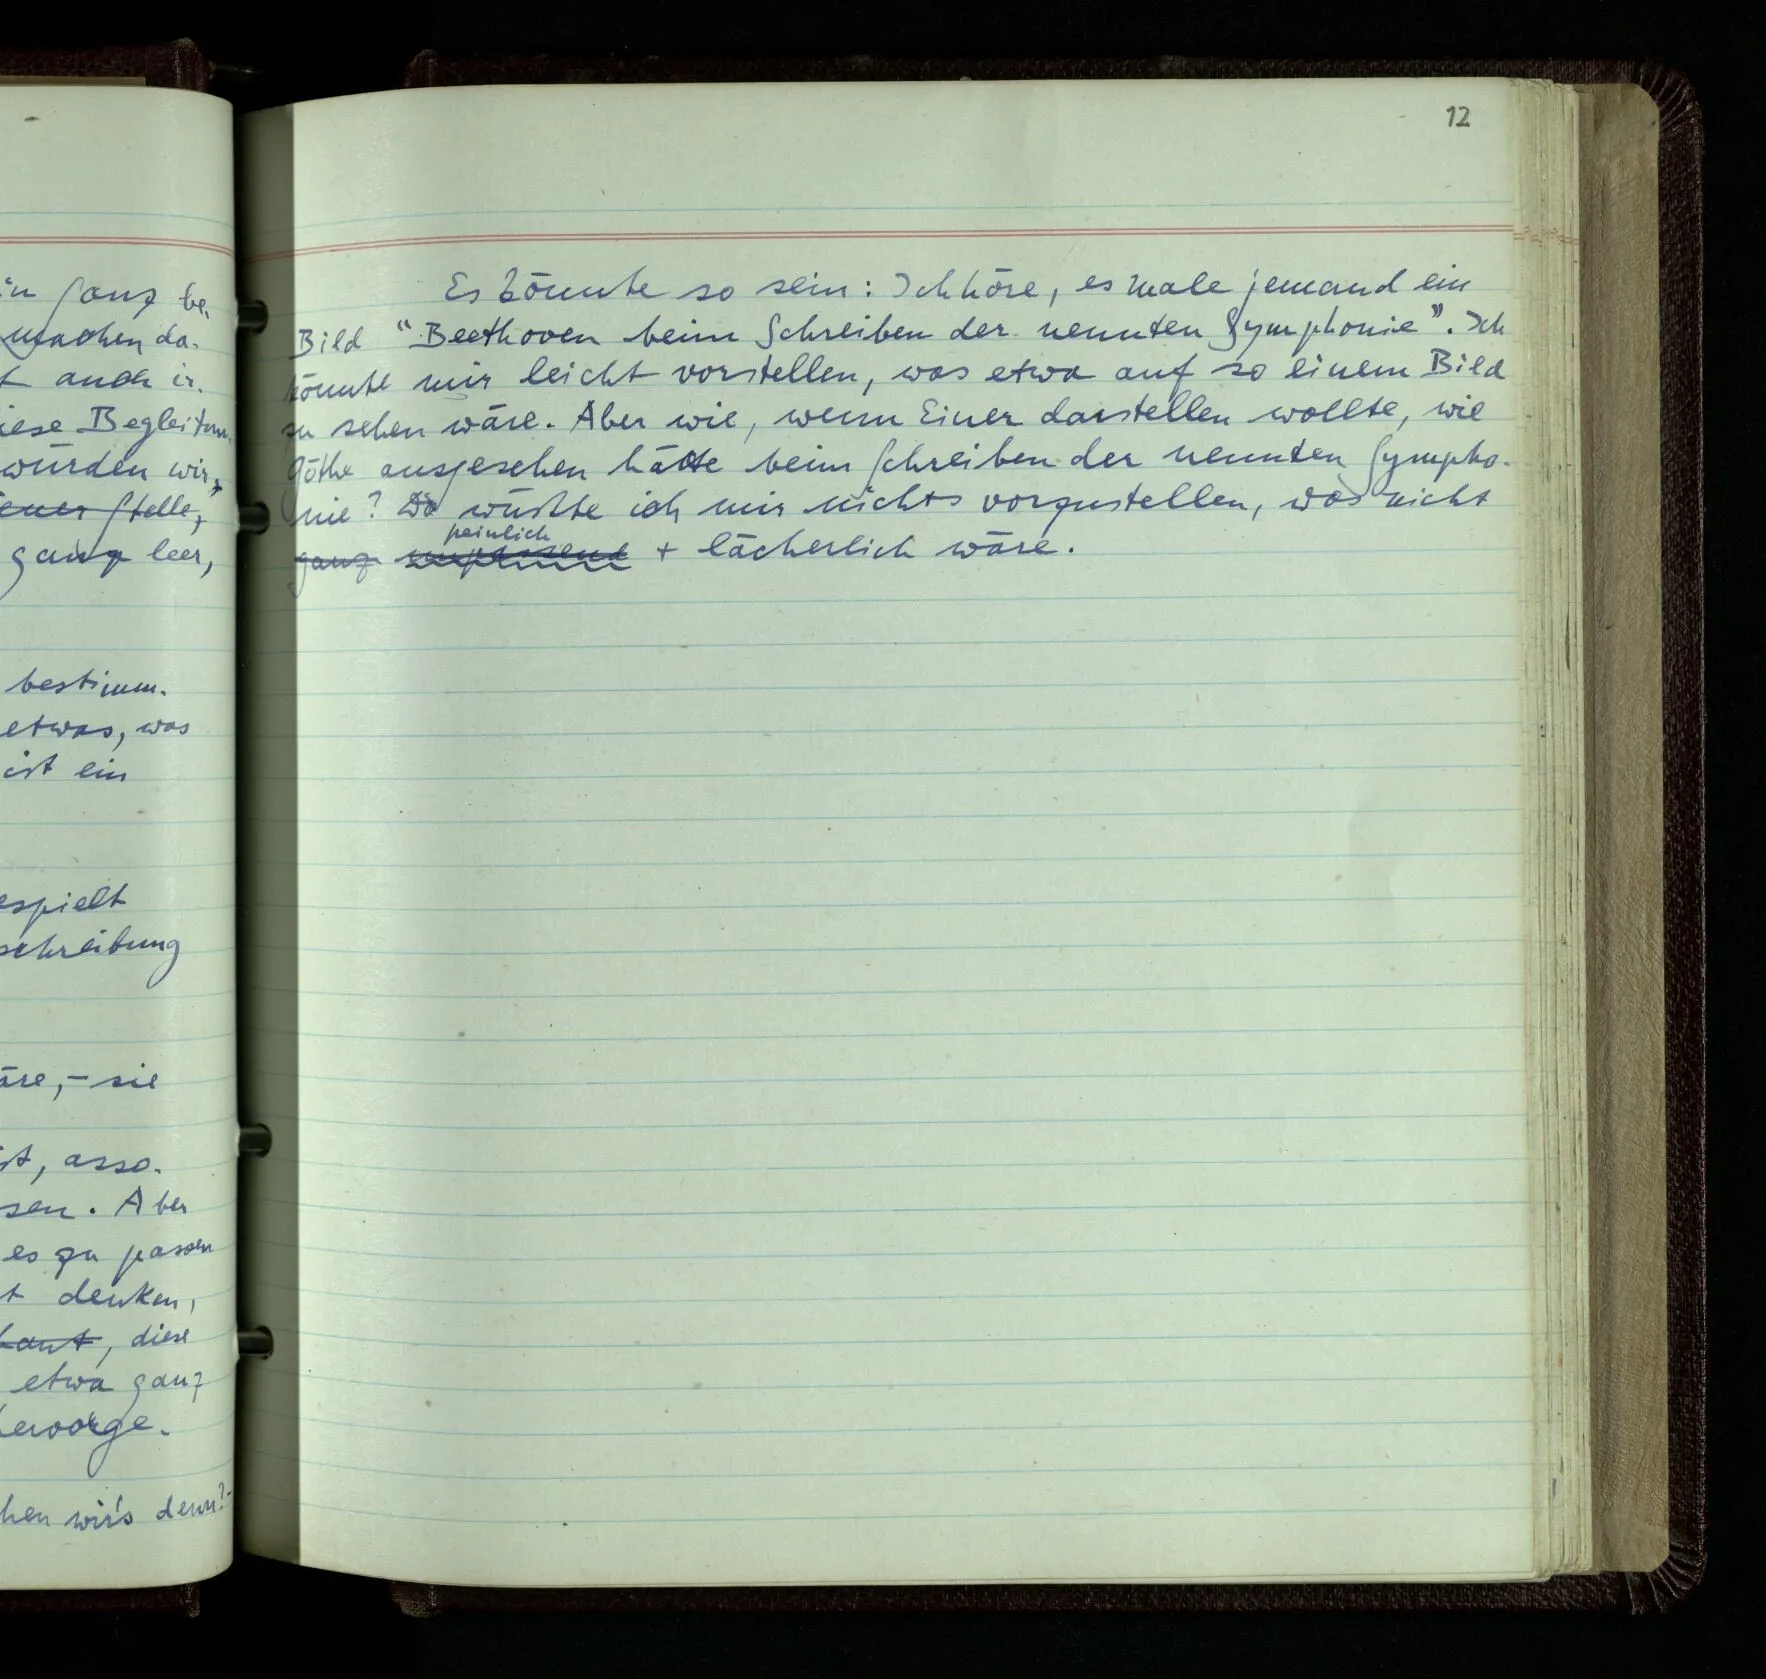 in ganz be-
machen da-
t auch ir-
iese Begleitum
würden wir,
jener Stelle,
ganz leer,
bestimm-
etwas, was
ist ein
espielt
schreibung
äre, – sie
ist, asso-
sen. Aber
es zu passen
t denken,
, diese
etwa ganz
hervorge-
hen wir's denn? –
12
Es könnte so sein: Ich höre, es male jemand ein
Bild “Beethoven beim Schreiben der neunten Symphonie”. Ich
könnte mir leicht vorstellen, was etwa auf so einem Bild
zu sehen wäre. Aber wie, wenn Einer darstellen wollte, wie
Göthe ausgesehen hätte beim Schreiben der neunten Sympho-
nie? Da wüßte ich mir nichts vorzustellen, was nicht
peinlich
ganz unpassend + lächerlich wäre.